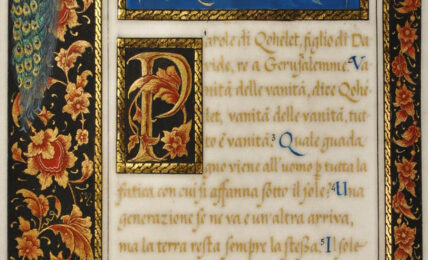 Parole di Qohelet, figlio di Da
vide, re a Gerusalemme. Va
nità delle vanità, dice Qohe
let, vanità delle vanità, tut
to è vanità. 3 Quale guada
gno viene all'uomo p tutta la
fatica con cui si affanna sotto il sole? 4 Una
generazione se ne va e un'altra arriva,
ma la terra resta sempre la stessa. 5 Il sole